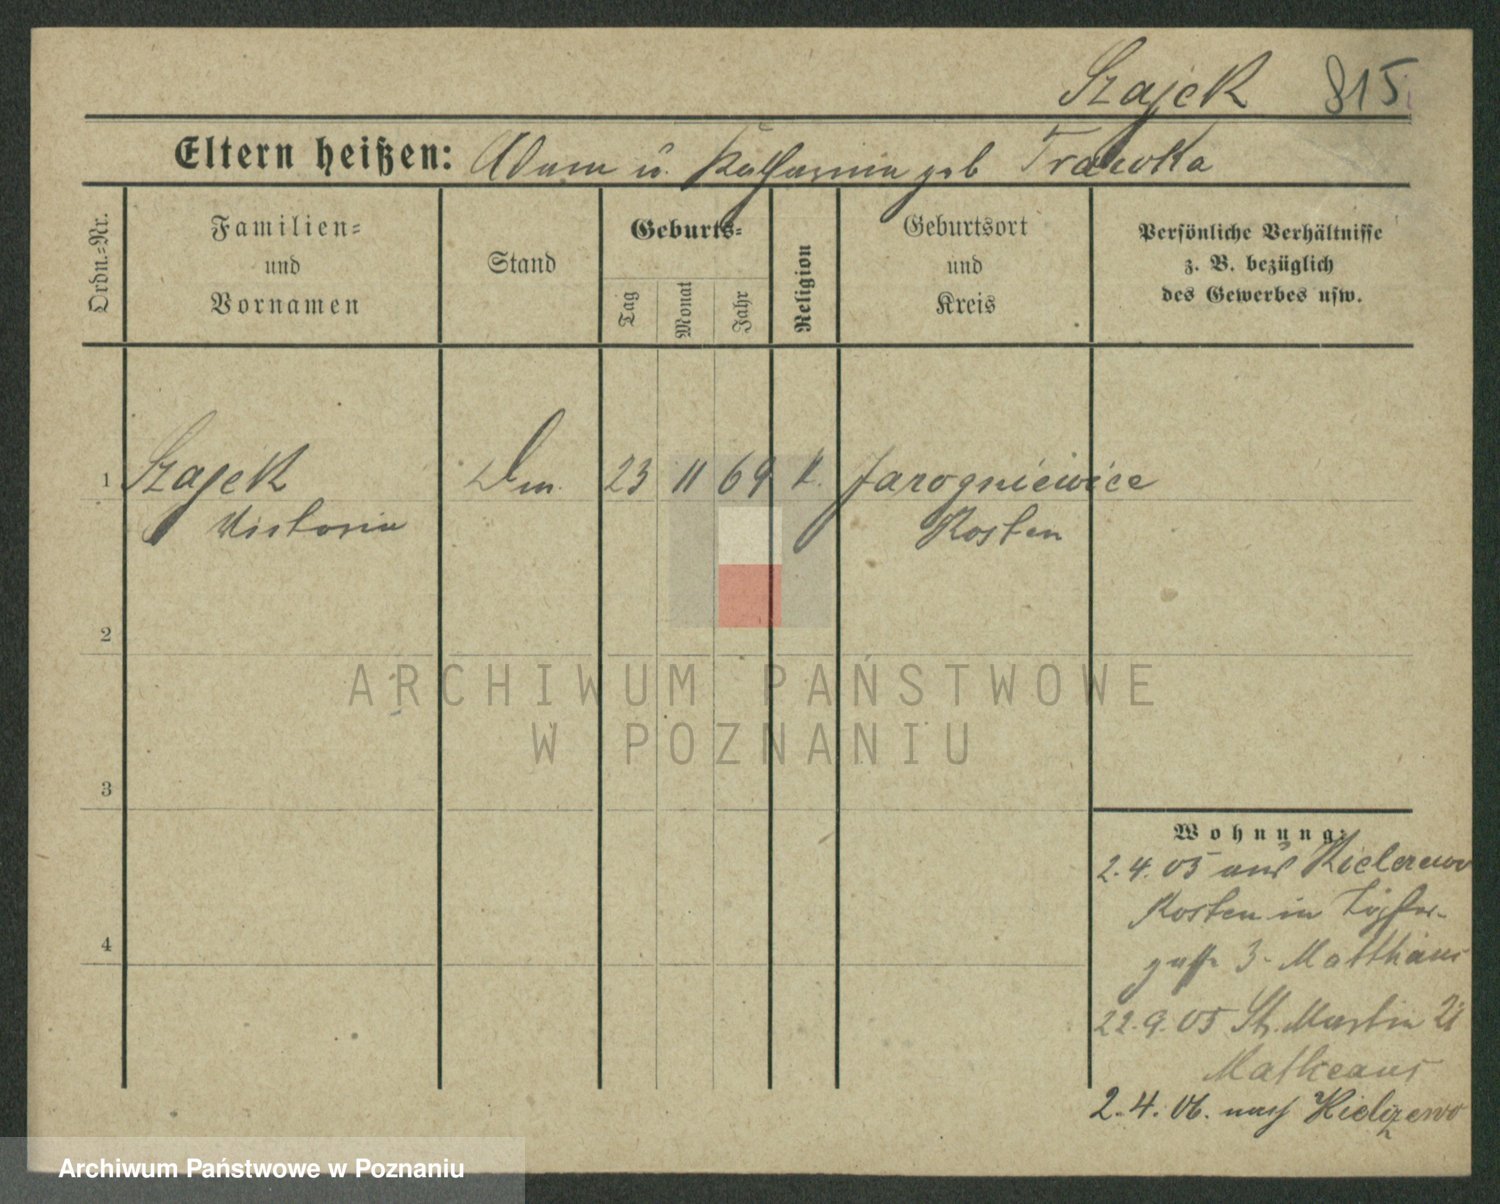 Szajek 815
Eltern heißen: Adam u. Katharina geb Trawka
Ordn.-Nr.
Familien-
und
Vornamen
Stand
Geburts-
Tag
Monat
Jahr
Religion
Geburtsort
und
Kreis
Persönliche Verhältnisse
z. B. bezüglich
des Gewerbes usw.
1 Szajek Dm. 23 11 69 K. Jarogniewice
Victoria Kosten
2
3
4
Wohnung:
2.4.05 aus
Kosten in
3 Matthäus
22.9.05 St. Martin 21
Matheaus
2.4.06. nach Kielczewo
ARCHIWUM PAŃSTWOWE
W POZNANIU
Archiwum Państwowe w Poznaniu